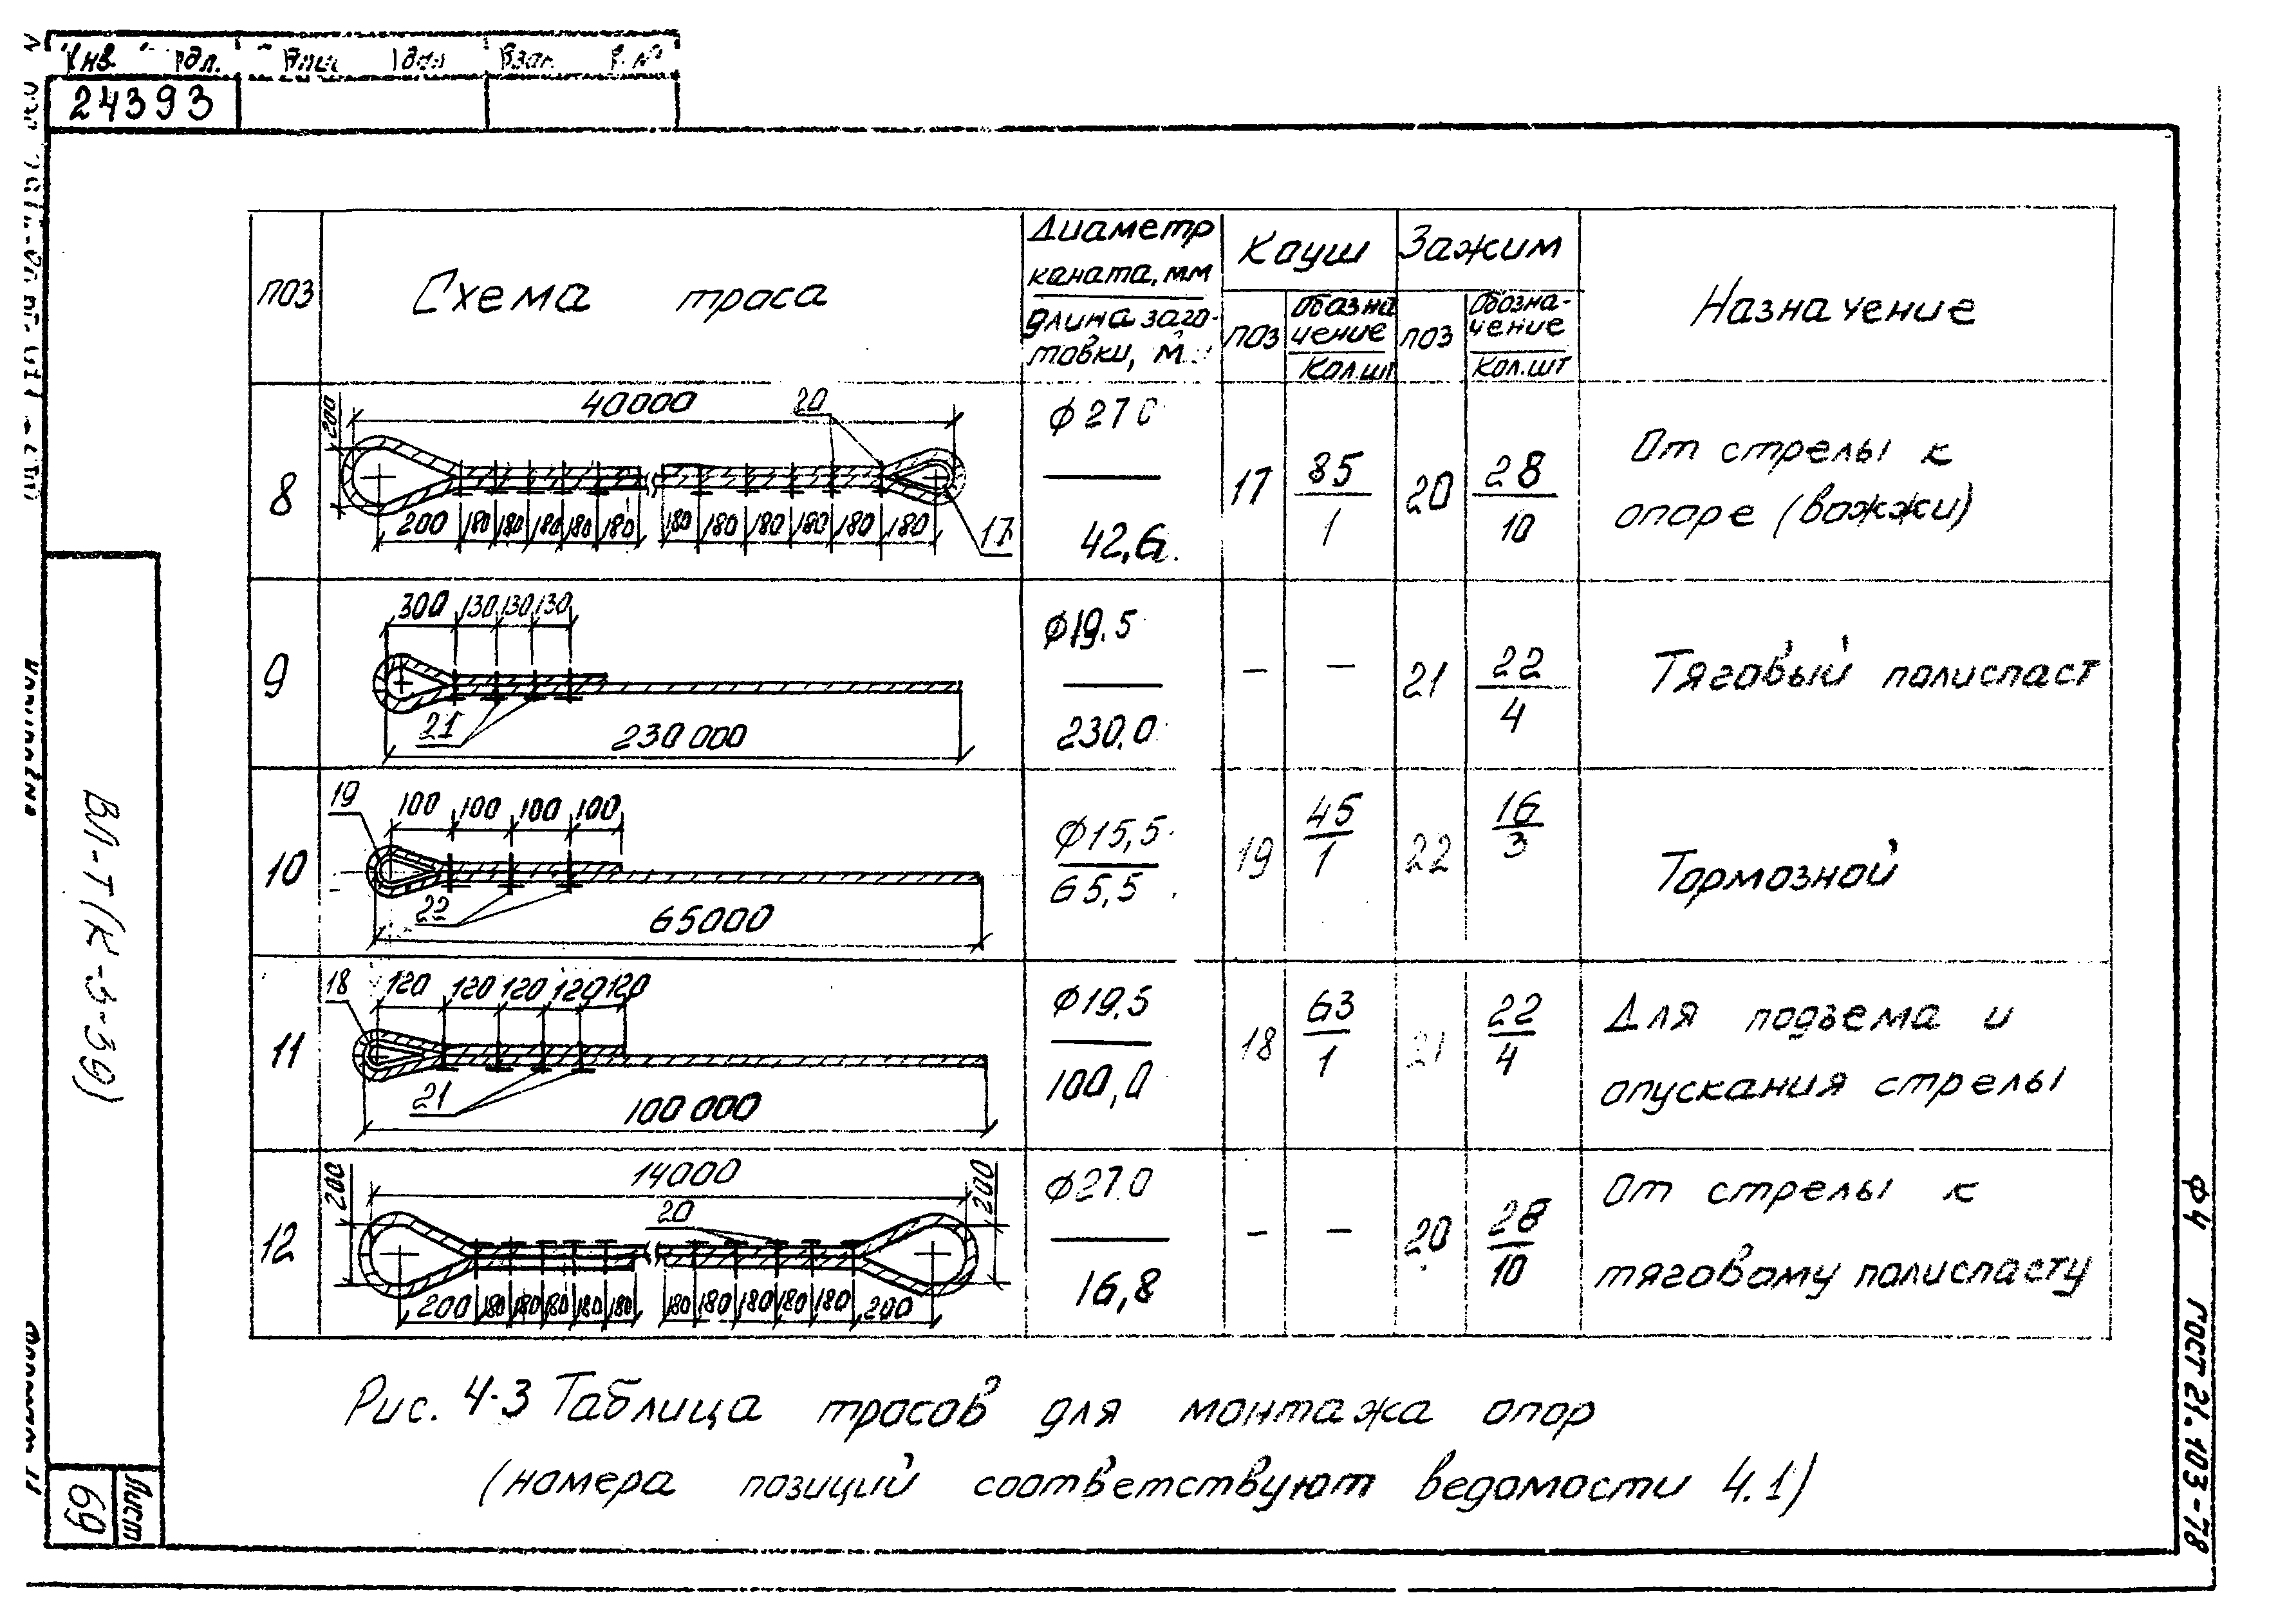 24393
поз
Схема троса
Диаметр
каната, мм
длина заго-
товки, м
Кауш
поз
Обозна
чение
Кол.шт
Зажим
поз
Обозна-
чение
Кол.шт
Назначение
8
200
40000
20
200 180 180 180 180 180
180 180 180 180 180 180
17
ϕ27.0
42,6
17
85
1
20
28
10
От стрелы к
опоре (вожжи)
9
300 130 130 130
21
230 000
ϕ19.5
230,0
–
–
21
22
4
Тяговый полиспаст
10
19
100 100 100 100
22
65000
ϕ15,5
65,5
19
45
1
22
16
3
Тормозной
11
18
120 120 120 120 120
21
100 000
ϕ19,5
100,0
18
63
1
21
22
4
Для подъема и
опускания стрелы
12
200
14000
200
20
200 180 180 180 180 180
180 180 180 180 180 200
ϕ27.0
16,8
–
–
20
28
10
От стрелы к
тяговому полиспасту
Рис. 4-3 Таблица тросов для монтажа опор
(номера позиций соответствуют ведомости 4.1)
ВЛ-Т(К-5-59)
Лист
69
Ф4 ГОСТ 21.103-78